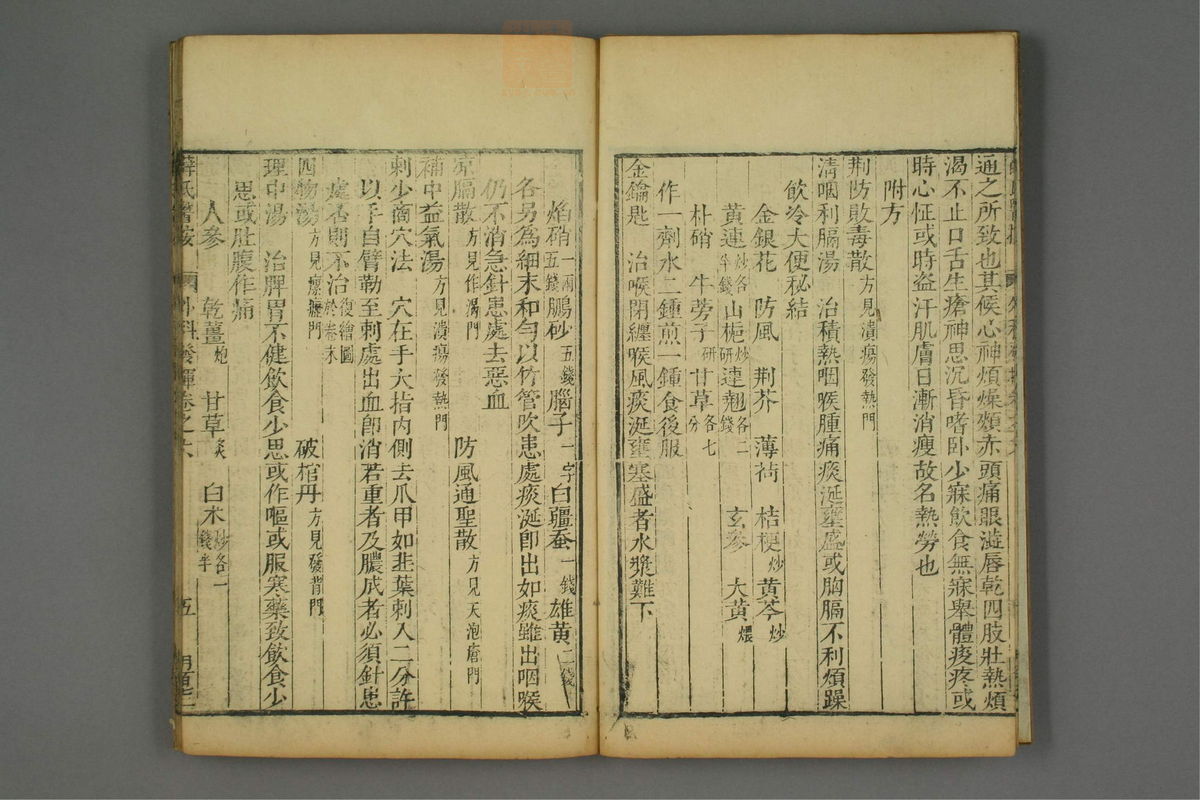 通之所致也其候心神煩燥頰赤頭痛眼澁唇乾四肢壯熱煩
渴不止口舌生瘡神思沉昏嗜卧少寐飲食無寐舉體痠疼或
時心怔或時盗汗肌膚日漸消瘦故名熱勞也
附方
荆防敗毒散方見潰瘍發熱門
清咽利膈湯 治積熱咽喉腫痛痰涎壅盛或胸膈不利煩躁
飲冷大便秘結
金銀花 防風 荆芥 薄荷 桔梗炒 黄芩炒
黄連炒各半錢 山梔炒研 連翹各二錢 玄參 大黄煨
朴硝 牛蒡子研 甘草各七分
作一劑水二鍾煎一鍾食後服
金鑰匙 治喉閉纏喉風痰涎壅塞盛者水漿難下
焰硝一兩五錢 鵬砂五錢 腦子一字 白彊蚕一錢 雄黄二錢
各另爲細末和勻以竹管吹患處痰涎卽出如痰雖出咽喉
仍不消急針患處去惡血
凉膈散方見作渴門 防風通聖散方見天泡瘡門
補中益氣湯方見潰瘍發熱門
刺少商穴法 穴在手大指内側去爪甲如韭葉刺入二分許
以手自臂勒至刺處出血卽消若重者及膿成者必須針患
處否則不治後繪圖於卷末
四物湯方見瘰癧門 破棺丹方見發背門
理中湯 治脾胃不健飲食少思或作嘔或服寒藥致飲食少
思或肚腹作痛
人參 乾薑炮 甘草炙 白朮炒各一錢半
薛氏醫按 外科發揮卷之六 五